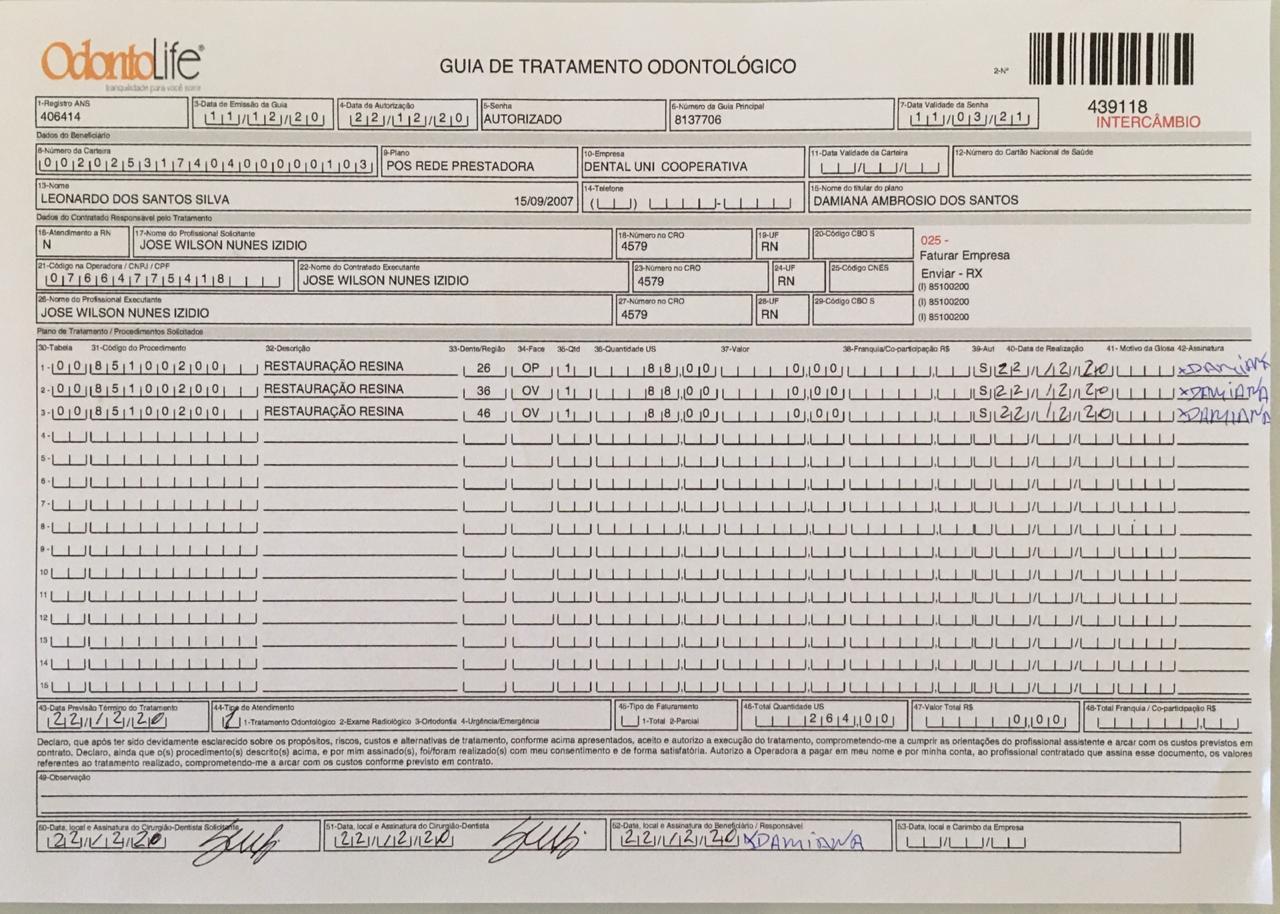 OdontoLife®
tranquilidade para você sorrir
GUIA DE TRATAMENTO ODONTOLÓGICO
2-Nº
439118
INTERCÂMBIO
1-Registro ANS 3-Data de Emissão da Guia 4-Data de Autorização 5-Senha 6-Número da Guia Principal 7-Data Validade da Senha
406414 11/12/20 22/12/20 AUTORIZADO 8137706 11/03/21
Dados do Beneficiário
8-Número da Carteira 9-Plano 10-Empresa 11-Data Validade da Carteira 12-Número do Cartão Nacional de Saúde
00202531740400000103 POS REDE PRESTADORA DENTAL UNI COOPERATIVA
13-Nome 14-Telefone 15-Nome do titular do plano
LEONARDO DOS SANTOS SILVA 15/09/2007 DAMIANA AMBROSIO DOS SANTOS
Dados do Contratado Responsável pelo Tratamento
16-Atendimento a RN 17-Nome do Profissional Solicitante 18-Número no CRO 19-UF 20-Código CBO S
N JOSE WILSON NUNES IZIDIO 4579 RN
025 -
Faturar Empresa
Enviar - RX
(I) 85100200
(I) 85100200
(I) 85100200
21-Código na Operadora / CNPJ / CPF 22-Nome do Contratado Executante 23-Número no CRO 24-UF 25-Código CNES
07664775418 JOSE WILSON NUNES IZIDIO 4579 RN
26-Nome do Profissional Executante 27-Número no CRO 28-UF 29-Código CBO S
JOSE WILSON NUNES IZIDIO 4579 RN
Plano de Tratamento / Procedimentos Solicitados
30-Tabela 31-Código do Procedimento 32-Descrição 33-Dente/Região 34-Face 35-Qtd 36-Quantidade US 37-Valor 38-Franquia/Co-participação R$ 39-Aut 40-Data de Realização 41- Motivo da Glosa 42-Assinatura
1-00 85100200 RESTAURAÇÃO RESINA 26 OP 1 88,00 0,00 S 22/12/20 xDAMIANA
2-00 85100200 RESTAURAÇÃO RESINA 36 OV 1 88,00 0,00 S 22/12/20 xDAMIANA
3-00 85100200 RESTAURAÇÃO RESINA 46 OV 1 88,00 0,00 S 22/12/20 xDAMIANA
4-
5-
6-
7-
8-
9-
10
11
12
13
14
15
43-Data Previsão Término do Tratamento 44-Tipo de Atendimento 45-Tipo de Faturamento 46-Total Quantidade US 47-Valor Total R$ 48-Total Franquia / Co-participação R$
22/12/20 1 1-Tratamento Odontológico 2-Exame Radiológico 3-Ortodontia 4-Urgência/Emergência 1-Total 2-Parcial 264,00 0,00
Declaro, que após ter sido devidamente esclarecido sobre os propósitos, riscos, custos e alternativas de tratamento, conforme acima apresentados, aceito e autorizo a execução do tratamento, comprometendo-me a cumprir as orientações do profissional assistente e arcar com os custos previstos em
contrato. Declaro, ainda que o(s) procedimento(s) descrito(s) acima, e por mim assinado(s), foi/foram realizado(s) com meu consentimento e de forma satisfatória. Autorizo a Operadora a pagar em meu nome e por minha conta, ao profissional contratado que assina esse documento, os valores
referentes ao tratamento realizado, comprometendo-me a arcar com os custos conforme previsto em contrato.
49-Observação
50-Data, local e Assinatura do Cirurgião-Dentista Solicitante 51-Data, local e Assinatura do Cirurgião-Dentista 52-Data, local e Assinatura do Beneficiário / Responsável 53-Data, local e Carimbo da Empresa
22/12/20 22/12/20 22/12/20 xDAMIANA